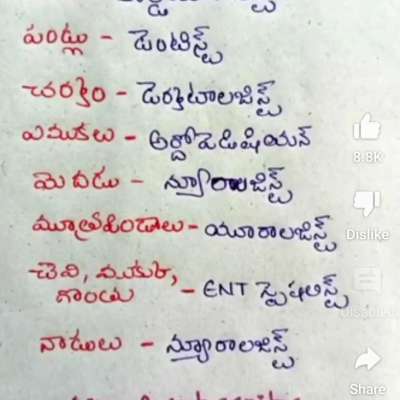 పండ్లు - డెంటిస్ట్
చర్మం - డెర్మటాలజిస్ట్
ఎముకలు - అర్థోపెడిషియన్
మెదడు - న్యూరాలజిస్ట్
మూత్రపిండాలు - యూరాలజిస్ట్
చెవి, ముక్కు,
గొంతు - ENT స్పెషలిస్ట్
నాడులు - న్యూరాలజిస్ట్
8.8K
Dislike
Share